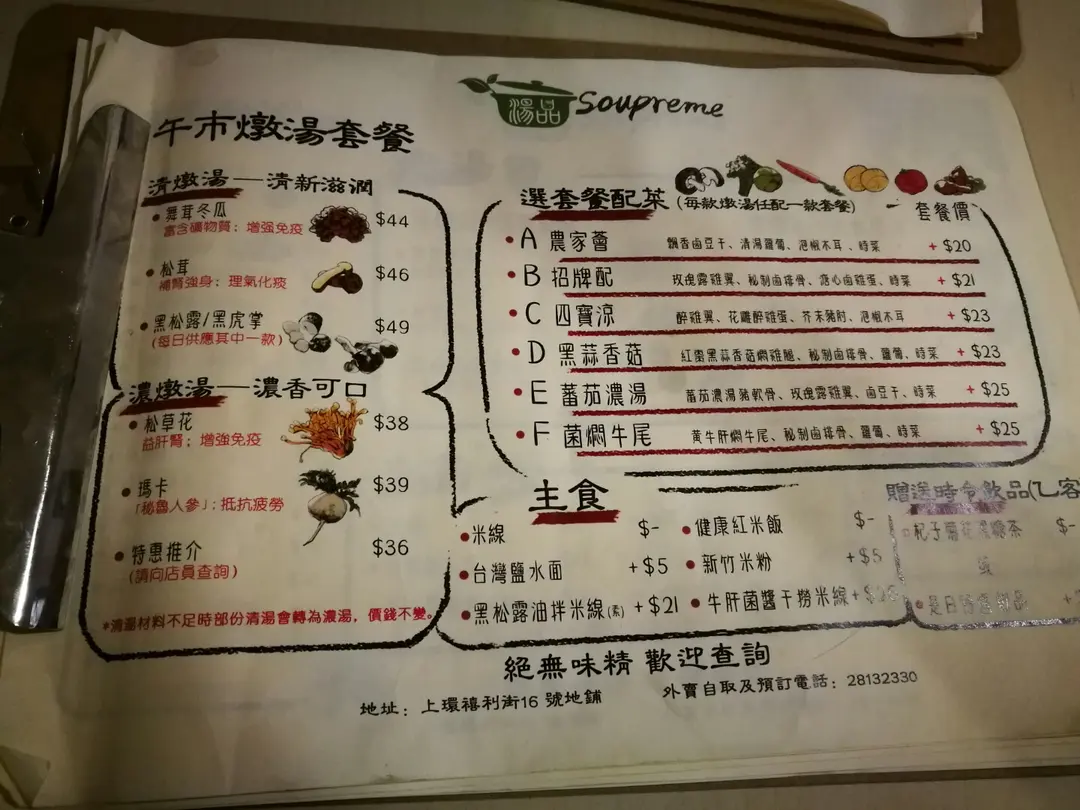 湯品 Soupreme
午市燉湯套餐
清燉湯—清新滋潤
舞茸冬瓜 $44
富含礦物質；增強免疫
松茸 $46
補腎強身；理氣化痰
黑松露/黑虎掌 $49
(每日供應其中一款)
濃燉湯—濃香可口
松草花 $38
益肝腎；增強免疫
瑪卡 $39
「秘魯人參」；抵抗疲勞
特惠推介 $36
(請向店員查詢)
*清燉材料不足時部份清湯會轉為濃湯，價錢不變。
選套餐配菜 (每款燉湯任配一款套餐) 套餐價
A 農家薈 飄香鹵豆干、清湯蘿蔔、泡椒木耳、時菜 +$20
B 招牌配 玫瑰露雞翼、秘制鹵排骨、溏心鹵雞蛋、時菜 +$21
C 四寶涼 醉雞翼、花雕醉雞蛋、芥末豬肘、泡椒木耳 +$23
D 黑蒜香菇 紅棗黑蒜香菇燜雞腿、秘制鹵排骨、蘿蔔、時菜 +$23
E 蕃茄濃湯 蕃茄濃湯豬軟骨、玫瑰露雞翼、鹵豆干、時菜 +$25
F 菌燜牛尾 黃牛肝燜牛尾、秘制鹵排骨、蘿蔔、時菜 +$25
主食
米線 $-
健康紅米飯 $-
台灣鹽水面 +$5
新竹米粉 +$5
黑松露油拌米線(素) +$21
牛肝菌醬干撈米線
贈送時令飲品(乙客
$-
或
是日
絕無味精 歡迎查詢
地址：上環禧利街16 號地鋪
外賣自取及預訂電話：28132330